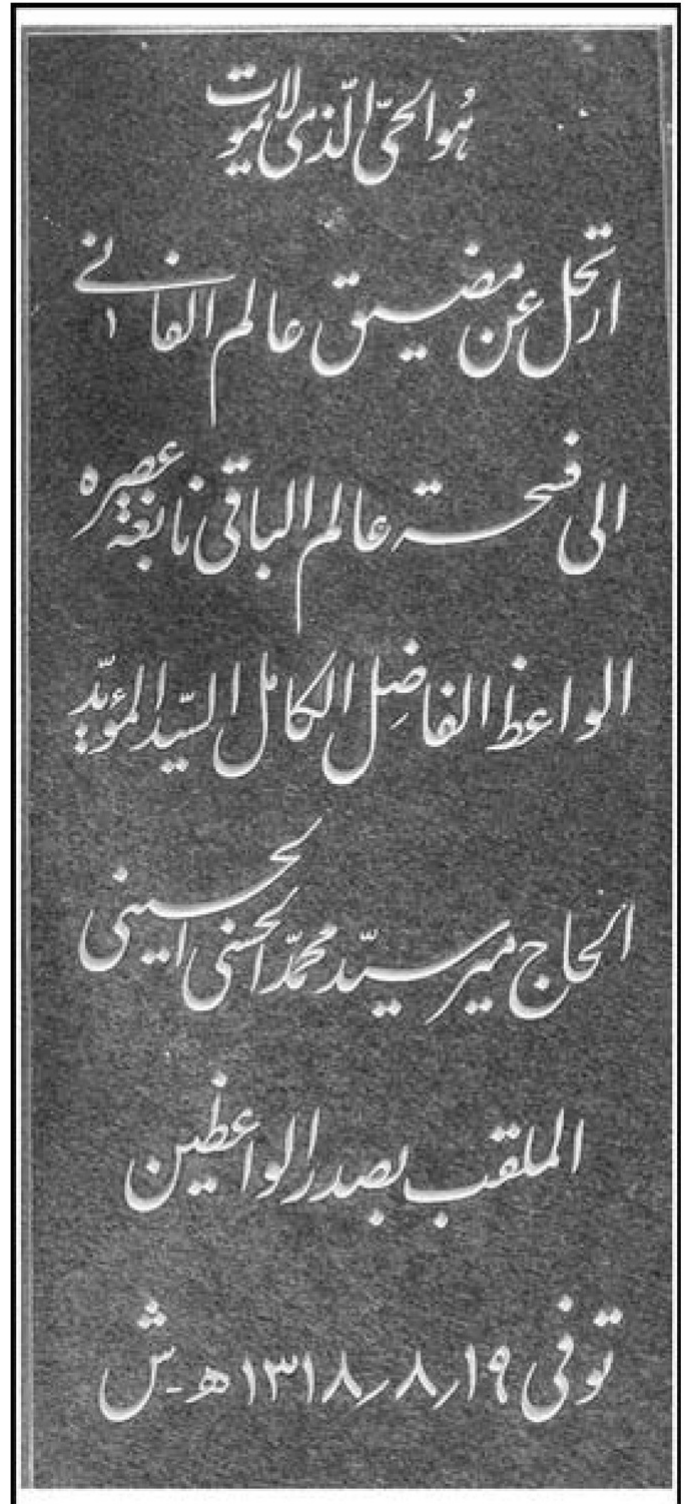 هُو الحیّ الّذی لایموت
ارتحل عن مضیق عالم الفانی
الی فسحة عالم الباقی نابغة عصره
الواعظ الفاضِل الکامل السیّد المؤیّد
الحاج میر سیّد محمّد الحسنی الحسینی
الملقب بصدر الواعظین
توفی ۱۹ر۸ر۱۳۱۸ ه-ش